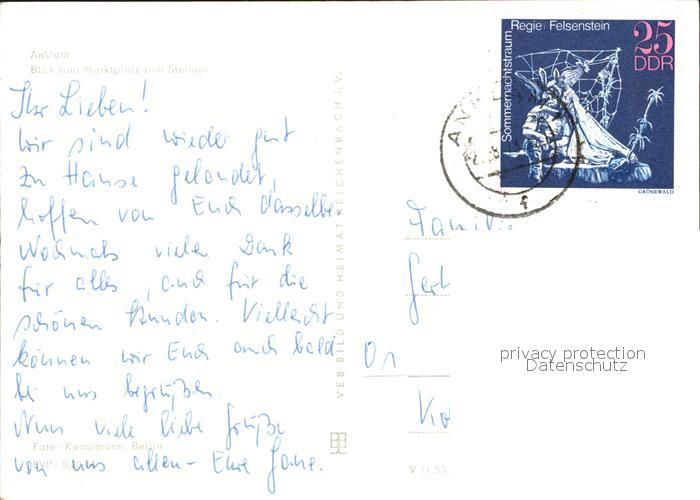 Anklam
Blick vom Marktplatz zum Steintor
Ihr Lieben!
Wir sind wieder gut
zu Hause gelandet,
hoffen von Euch dasselbe
Nochmals vielen Dank
für alles, und für die
schönen Stunden. Vielleicht
können wir Euch auch bald
bei uns begrüßen.
Nun viele liebe Grüße
von uns allen - Eure
Foto: Kampmann, Berlin
VEB BILD UND HEIMAT REICHENBACH i. V.
Regie: Felsenstein
Sommernachtstraum
25
DDR
GRÜNEWALD
Familie
Gerh
privacy protection
Datenschutz
V 11 50